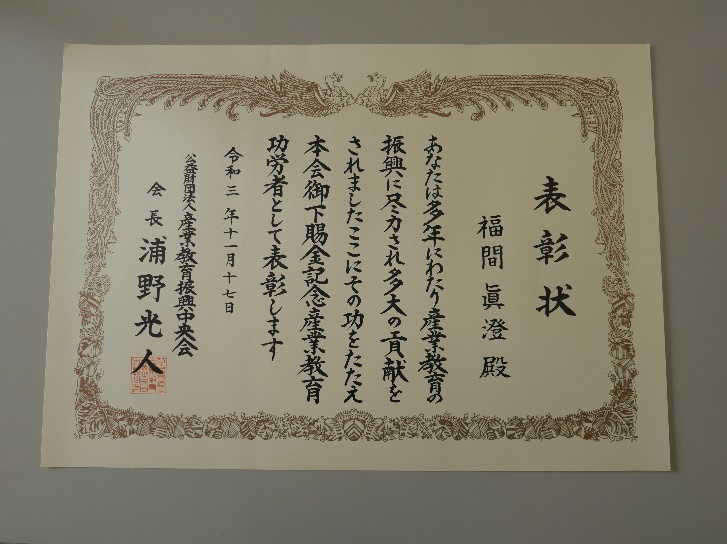 表彰状
福間眞澄殿
あなたは多年にわたり産業教育の
振興に尽力され多大の貢献を
されましたここにその功をたたえ
本会御下賜金記念産業教育
功労者として表彰します
令和三年十一月十七日
公益財団法人産業教育振興中央会
会長浦野光人